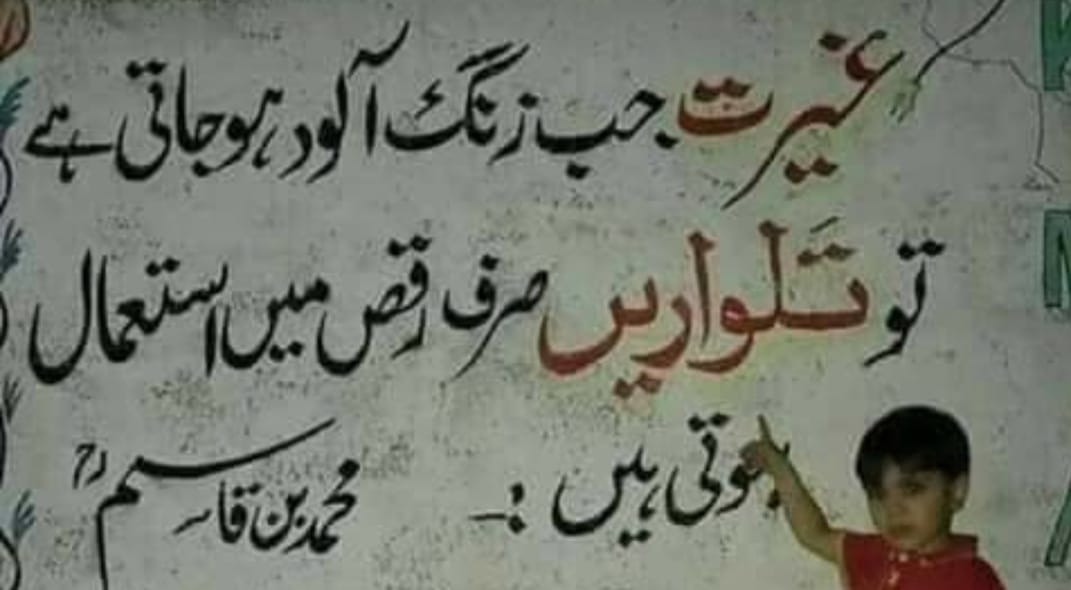 غیرت جب زنگ آلود ہو جاتی ہے
تو تَلواریں صرف رقص میں استعمال
ہوتی ہیں :۔
محمد بن قاسم رح